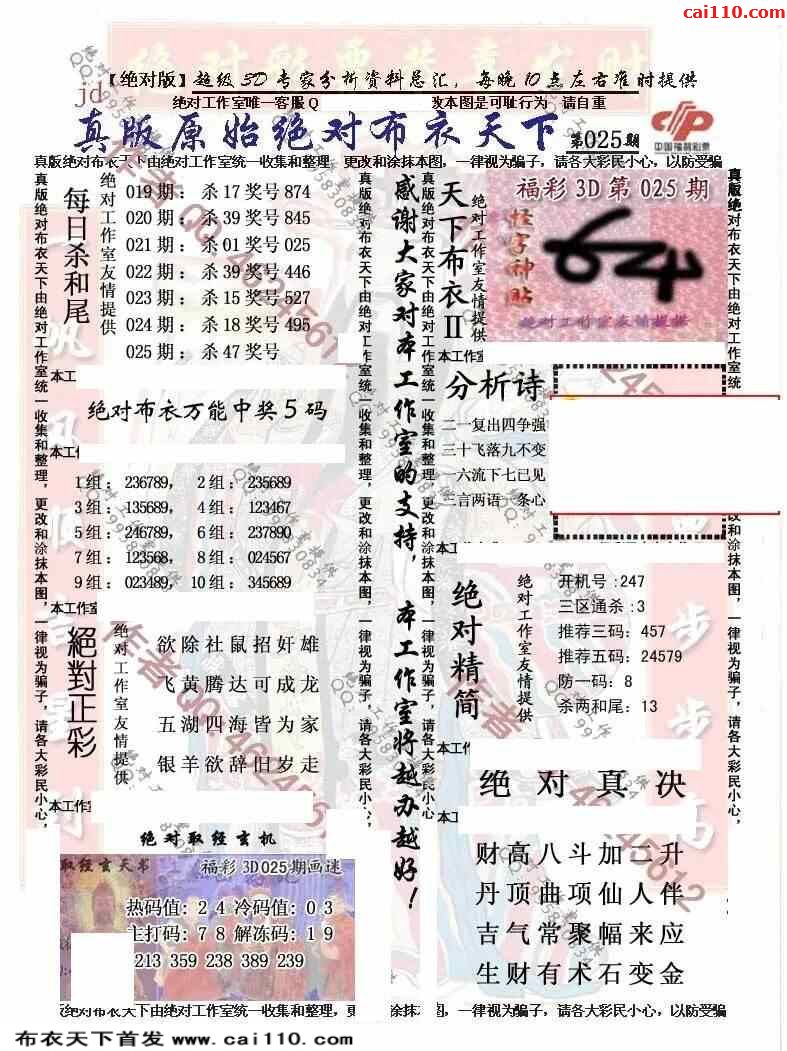 cai110.com
【绝对版】超级3D专家分析资料总汇，每晚10点左右准时提供
jd
绝对工作室唯一客服Q 改本图是可耻行为 请自重
真版原始绝对布衣天下 第025期
中国福利彩票
真版绝对布衣天下由绝对工作室统一收集和整理，更改和涂抹本图，一律视为骗子，请各大彩民小心，以防受骗
真版绝对布衣天下由绝对工作室统一收集和整理，更改和涂抹本图，一律视为骗子，请各大彩民小心，
每日杀和尾
绝对工作室友情提供
019期：杀17奖号874
020期：杀39奖号845
021期：杀01奖号025
022期：杀39奖号446
023期：杀15奖号527
024期：杀18奖号495
025期：杀47奖号
本工
绝对布衣万能中奖5码
本工
1组：236789，2组：235689
3组：135689，4组：123467
5组：246789，6组：237890
7组：123568，8组：024567
9组：023489，10组：345689
本工作室
絕對正彩
绝对工作室友情提供
欲除社鼠招奸雄
飞黄腾达可成龙
五湖四海皆为家
银羊欲辞旧岁走
本工作
绝对取经玄机
取经玄天书 福彩3D025期画迷
热码值：24冷码值：03
主打码：78解冻码：19
213 359 238 389 239
真版绝对布衣天下由绝对工作室统一收集和整理，更改和涂抹本图，一律视为骗子，请各大彩民小心，
感谢大家对本工作室的支持，本工作室将越办越好！
真版绝对布衣天下由绝对工作室统一收集和整理，更改和涂抹本图，一律视为骗子，请各大彩民小心，
天下布衣II
绝对工作室友情提供
福彩3D第025期
怪字神贴
绝对工作室友情提供
本工作室
分析诗
二一复出四争强
三十飞落九不变
一六流下七已见
三言两语一条心
本工
绝对精简
绝对工作室友情提供
开机号:247
三区通杀:3
推荐三码：457
推荐五码：24579
防一码：8
杀两和尾：13
本工作
绝对真决
本工
财高八斗加二升
丹顶曲项仙人伴
吉气常聚幅来应
生财有术石变金
真版绝对布衣天下由绝对工作室统一收集和整理，更改和涂抹本图，一律视为骗子，请各大彩民小心，
绝对布衣天下由绝对工作室统一收集和整理，更 涂抹本图，一律视为骗子，请各大彩民小心，以防受骗
布衣天下首发 www.cai110.com